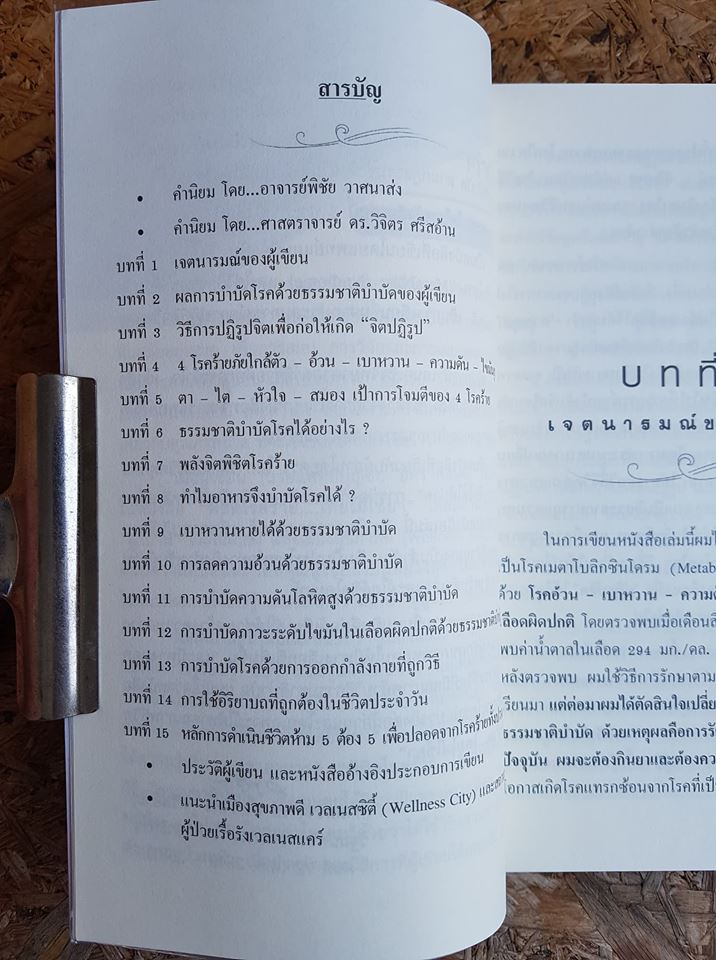 สารบัญ
• คำนิยม โดย...อาจารย์พิชัย วาศนาส่ง
• คำนิยม โดย...ศาสตราจารย์ ดร.วิจิตร ศรีสอ้าน
บทที่ 1 เจตนารมณ์ของผู้เขียน
บทที่ 2 ผลการบำบัดโรคด้วยธรรมชาติบำบัดของผู้เขียน
บทที่ 3 วิธีการปฏิรูปจิตเพื่อก่อให้เกิด “จิตปฏิรูป”
บทที่ 4 4 โรคร้ายภัยใกล้ตัว – อ้วน – เบาหวาน – ความดัน –
บทที่ 5 ตา – ไต – หัวใจ – สมอง เป้าการโจมตีของ 4 โรคร้าย
บทที่ 6 ธรรมชาติบำบัดโรคได้อย่างไร ?
บทที่ 7 พลังจิตพิชิตโรคร้าย
บทที่ 8 ทำไมอาหารจึงบำบัดโรคได้ ?
บทที่ 9 เบาหวานหายได้ด้วยธรรมชาติบำบัด
บทที่ 10 การลดความอ้วนด้วยธรรมชาติบำบัด
บทที่ 11 การบำบัดความดันโลหิตสูงด้วยธรรมชาติบำบัด
บทที่ 12 การบำบัดภาวะระดับไขมันในเลือดผิดปกติด้วยธรรมชาติ
บทที่ 13 การบำบัดโรคด้วยการออกกำลังกายที่ถูกวิธี
บทที่ 14 การใช้อิริยาบถที่ถูกต้องในชีวิตประจำวัน
บทที่ 15 หลักการดำเนินชีวิตห้าม 5 ต้อง 5 เพื่อปลอดจากโรคร้าย
• ประวัติผู้เขียน และหนังสืออ้างอิงประกอบการเขียน
• แนะนำเมืองสุขภาพดี เวลเนสซิตี้ (Wellness City) และ
ผู้ป่วยเรื้อรังเวลเนสแคร์
บทที่
เจตนารมณ์ข
ในการเขียนหนังสือเล่มนี้ผมไ
เป็นโรคเมตาโบลิกซินโดรม (Metab
ด้วย โรคอ้วน – เบาหวาน – ความ
เลือดผิดปกติ โดยตรวจพบเมื่อเดือนสิ
พบค่าน้ำตาลในเลือด 294 มก./ดล.
หลังตรวจพบ ผมใช้วิธีการรักษาตาม
เรียนมา แต่ต่อมาผมได้ตัดสินใจเปลี่ย
ธรรมชาติบำบัด ด้วยเหตุผลคือการรั
ปัจจุบัน ผมจะต้องกินยาและต้องคว
โอกาสเกิดโรคแทรกซ้อนจากโรคที่เป็